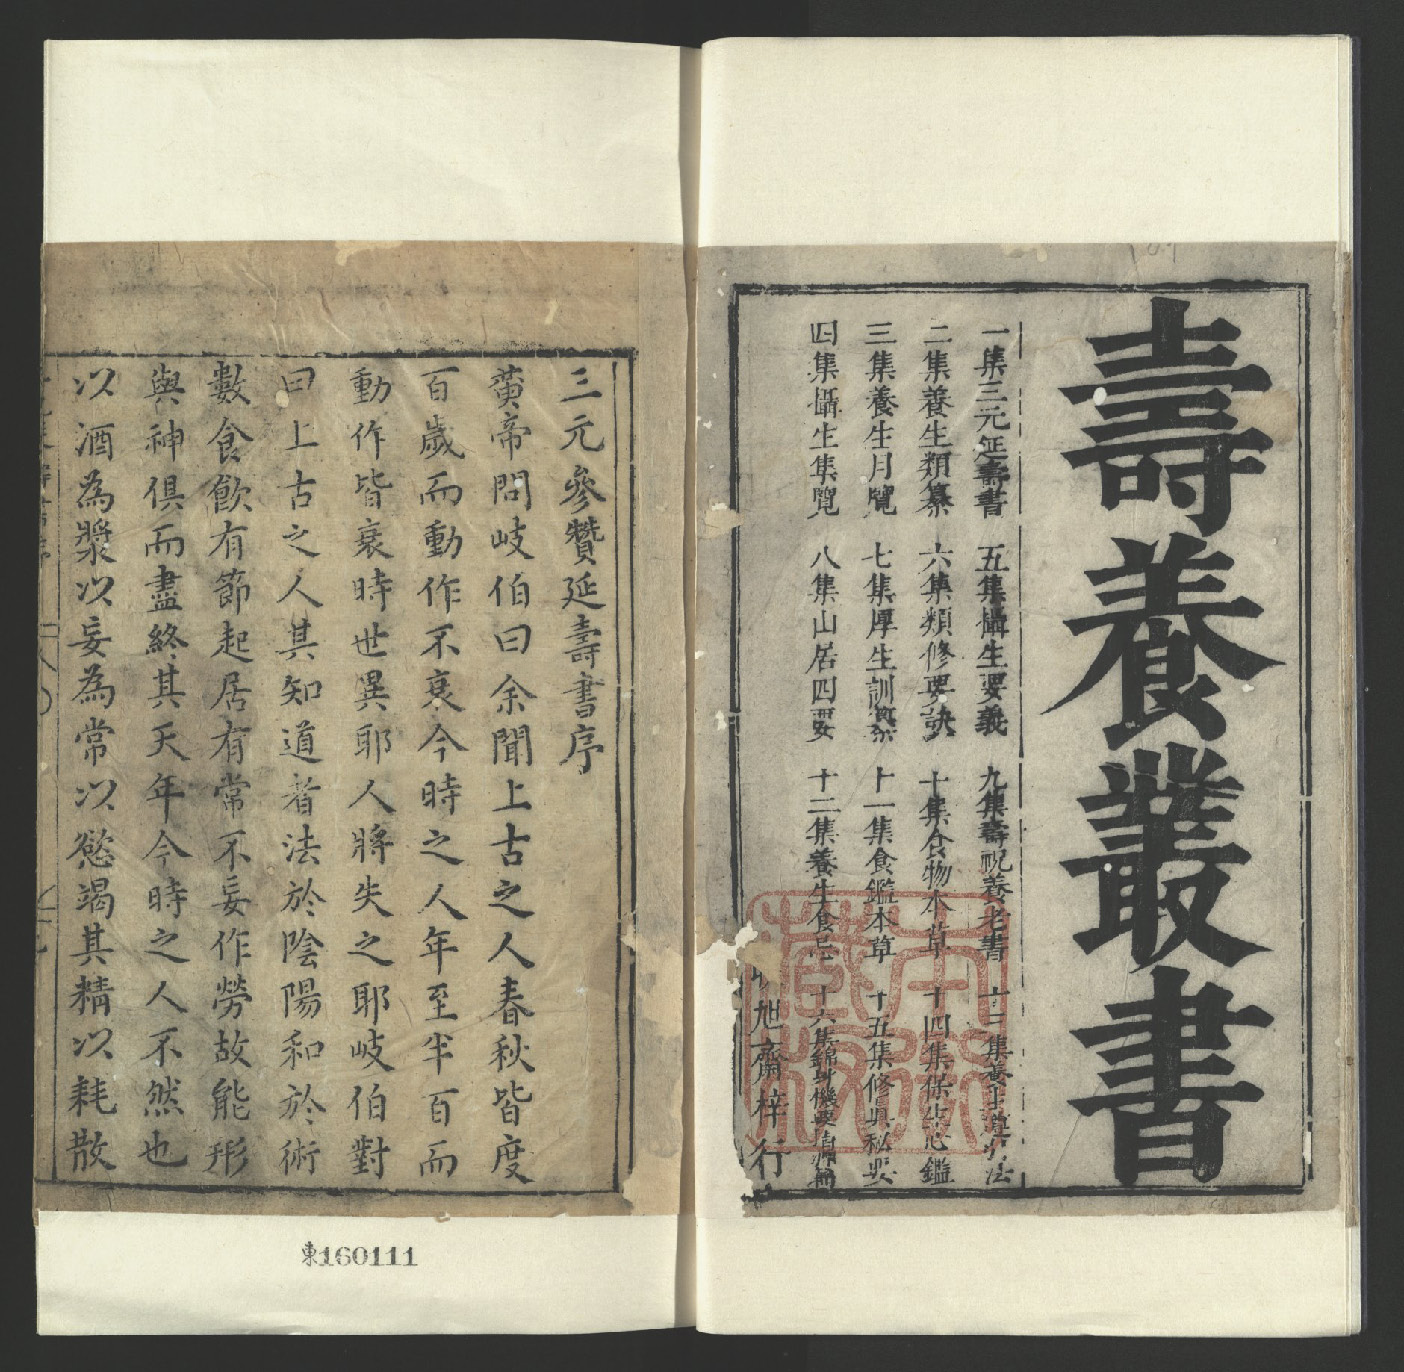 壽養叢書
一集三元延壽書 五集攝生要義 九集壽親養老書 十三集養生導引法
二集養生類纂 六集類修要訣 十集食物本草 十四集保生心鑑
三集養生月覽 七集厚生訓纂 十一集食鑑本草 十五集修真秘要
四集攝生集覽 八集山居四要 十二集養生食忌 十六集錦身機要指源篇
旭齋梓行
三元參贊延壽書序
黃帝問岐伯曰余聞上古之人春秋皆度
百歲而動作不衰今時之人年至半百而
動作皆衰時世異耶人將失之耶岐伯對
曰上古之人其知道者法於陰陽和於術
數食飲有節起居有常不妄作勞故能形
與神俱而盡終其天年今時之人不然也
以酒為漿以妄為常以慾竭其精以耗散
東160111